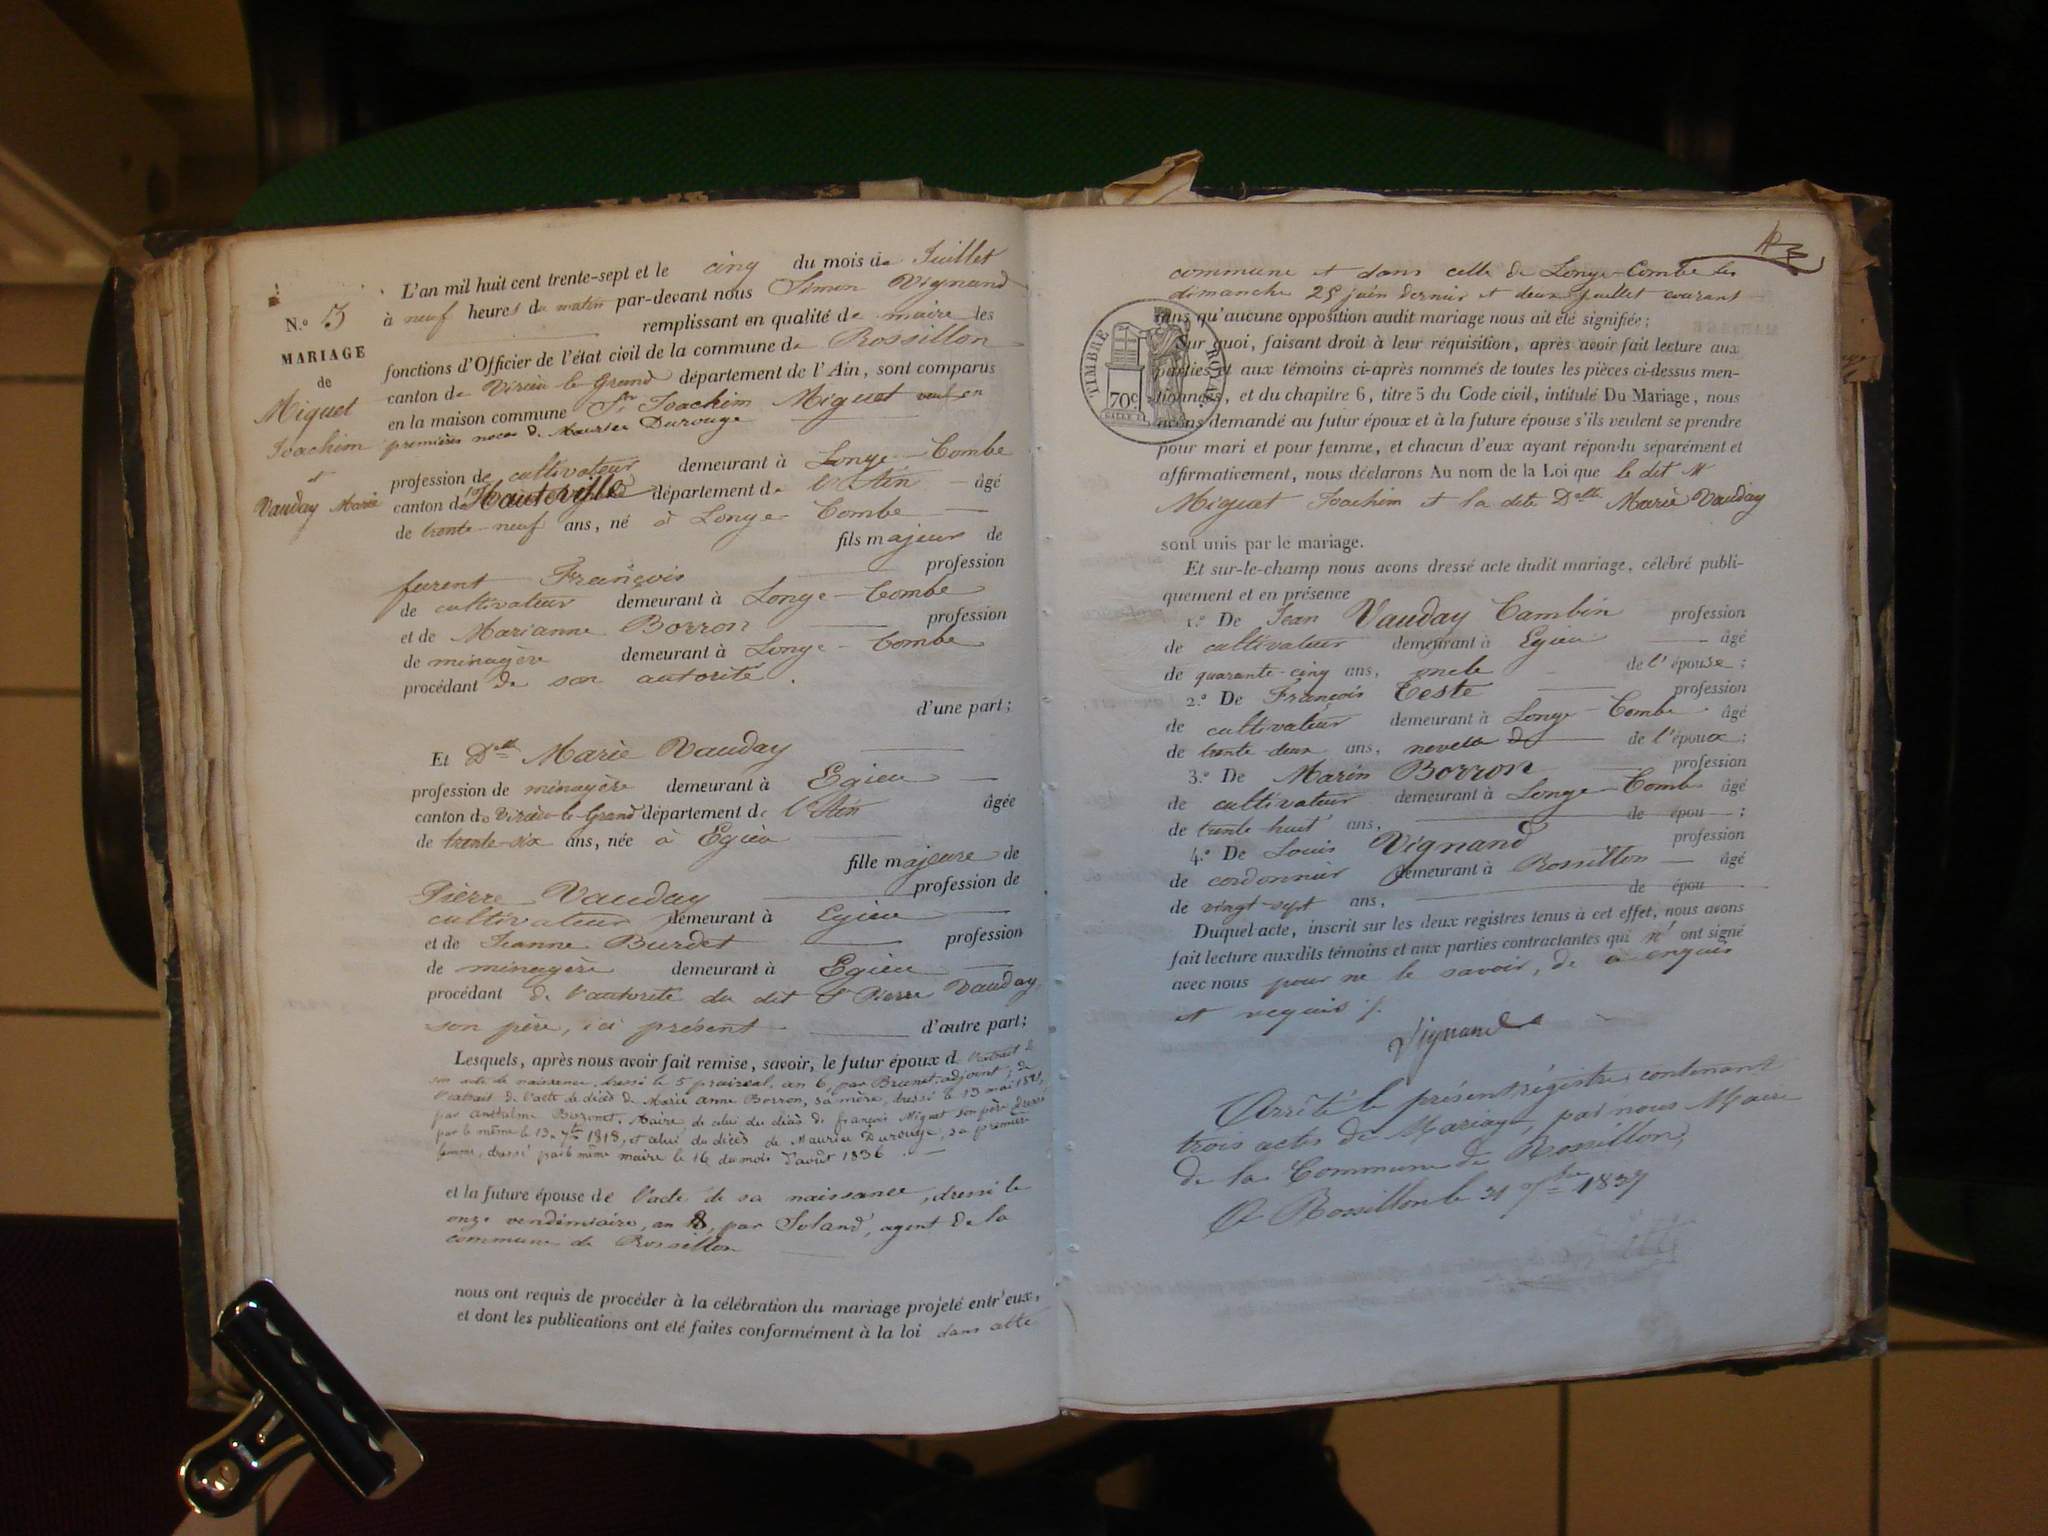 N.° 3
MARIAGE
de
Miguet
Joachim
et
Vauday Marie
L'an mil huit cent trente-sept et le cinq du mois de Juillet
à neuf heures du matin par-devant nous Simon Vignand
remplissant en qualité de maire les
fonctions d'Officier de l'état civil de la commune de Rossillon
canton de Virieu-le-Grand département de l'Ain, sont comparus
en la maison commune Sr Joachim Miguet veuf en
premières noces de Maurise Durouge
profession de cultivateur demeurant à Longe-Combe
canton de Hauteville département de l'Ain âgé
de trente-neuf ans, né à Longe-Combe
fils majeur de
furent François profession
de cultivateur demeurant à Longe-Combe
et de Marianne Borron profession
de ménagère demeurant à Longe-Combe
procédant de son autorité.
d'une part;
Et Delle Marie Vauday
profession de ménagère demeurant à Egieu
canton de Virieu-le-Grand département de l'Ain âgée
de trente-six ans, née à Egieu
fille majeure de
Pierre Vauday profession de
cultivateur demeurant à Egieu
et de Jeanne Burdet profession
de ménagère demeurant à Egieu
procédant de l'autorité du dit Sr Pierre Vauday,
son père, ici présent d'autre part;
Lesquels, après nous avoir fait remise, savoir, le futur époux de l'extrait de
son acte de naissance, dressé le 5 prairéal, an 6, par Brunet, adjoint, de
l'extrait de l'acte de décès de Marie Anne Borron, sa mère, dressé le 13 mai
par Anthelme Maire, de celui du décès de françois Miguet son père dressé
par le même le 13 7bre 1818, et celui du décès de Maurise Durouge, sa première
femme, dressé par le même maire le 16 du mois d'août 1836.
et la future épouse de l'acte de sa naissance, dressé le
onze vendémiaire, an 8, par Soland, agent de la
commune de Rossillon
nous ont requis de procéder à la célébration du mariage projeté entr'eux,
et dont les publications ont été faites conformément à la loi dans cette
commune et dans celle de Longe-Combe les
dimanche 25 juin dernier et deux juillet courant
sans qu'aucune opposition audit mariage nous ait été signifiée;
TIMBRE ROYAL
70c
Sur quoi, faisant droit à leur réquisition, après avoir fait lecture aux
parties et aux témoins ci-après nommés de toutes les pièces ci-dessus men-
tionnées, et du chapitre 6, titre 5 du Code civil, intitulé Du Mariage, nous
avons demandé au futur époux et à la future épouse s'ils veulent se prendre
pour mari et pour femme, et chacun d'eux ayant répondu séparément et
affirmativement, nous déclarons Au nom de la Loi que le dit Mr
Miguet Joachim et la dite Delle Marie Vauday
sont unis par le mariage.
Et sur-le-champ nous avons dressé acte dudit mariage, célébré publi-
quement et en présence
1.° De Jean Vauday Cambin profession
de cultivateur demeurant à Egieu âgé
de quarante-cinq ans, oncle de l'épouse;
2.° De François Teste profession
de cultivateur demeurant à Longe-Combe âgé
de trente deux ans, neveu de l'époux;
3.° De Marin Borron profession
de cultivateur demeurant à Longe-Combe âgé
de trente huit ans, de épou ;
4.° De Louis Vignand profession
de cordonnier demeurant à Rossillon âgé
de vingt-sept ans, de épou
Duquel acte, inscrit sur les deux registres tenus à cet effet, nous avons
fait lecture auxdits témoins et aux parties contractantes qui n' ont signé
avec nous pour ne le savoir, de ce enquis
et requis ./.
Vignand
Arrêté le présent régistre contenant
trois actes de Mariage, par nous Maire
de la Commune de Rossillon,
A Rossillon le 31 1837